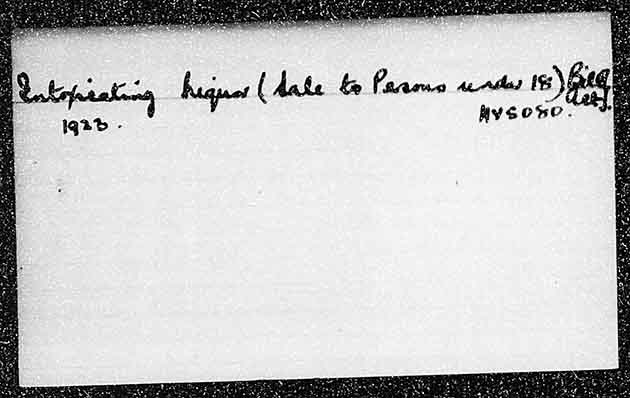 Intoxicating Liquor (Sale to Persons under 18) Bill &
Act).
1923.
HV5080.